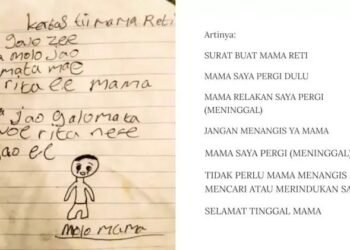 Kertas tii mama Reti
galo zee
a molo Jao
mata mae
rita ee mama
Jao galo mata
woe rita nee
ao ee
molo mama
Artinya:
SURAT BUAT MAMA RETI
MAMA SAYA PERGI DULU
MAMA RELAKAN SAYA PERGI
(MENINGGAL)
JANGAN MENANGIS YA MAMA
MAMA SAYA PERGI (MENINGGAL)
TIDAK PERLU MAMA MENANGIS
MENCARI ATAU MERINDUKAN SA
SELAMAT TINGGAL MAMA